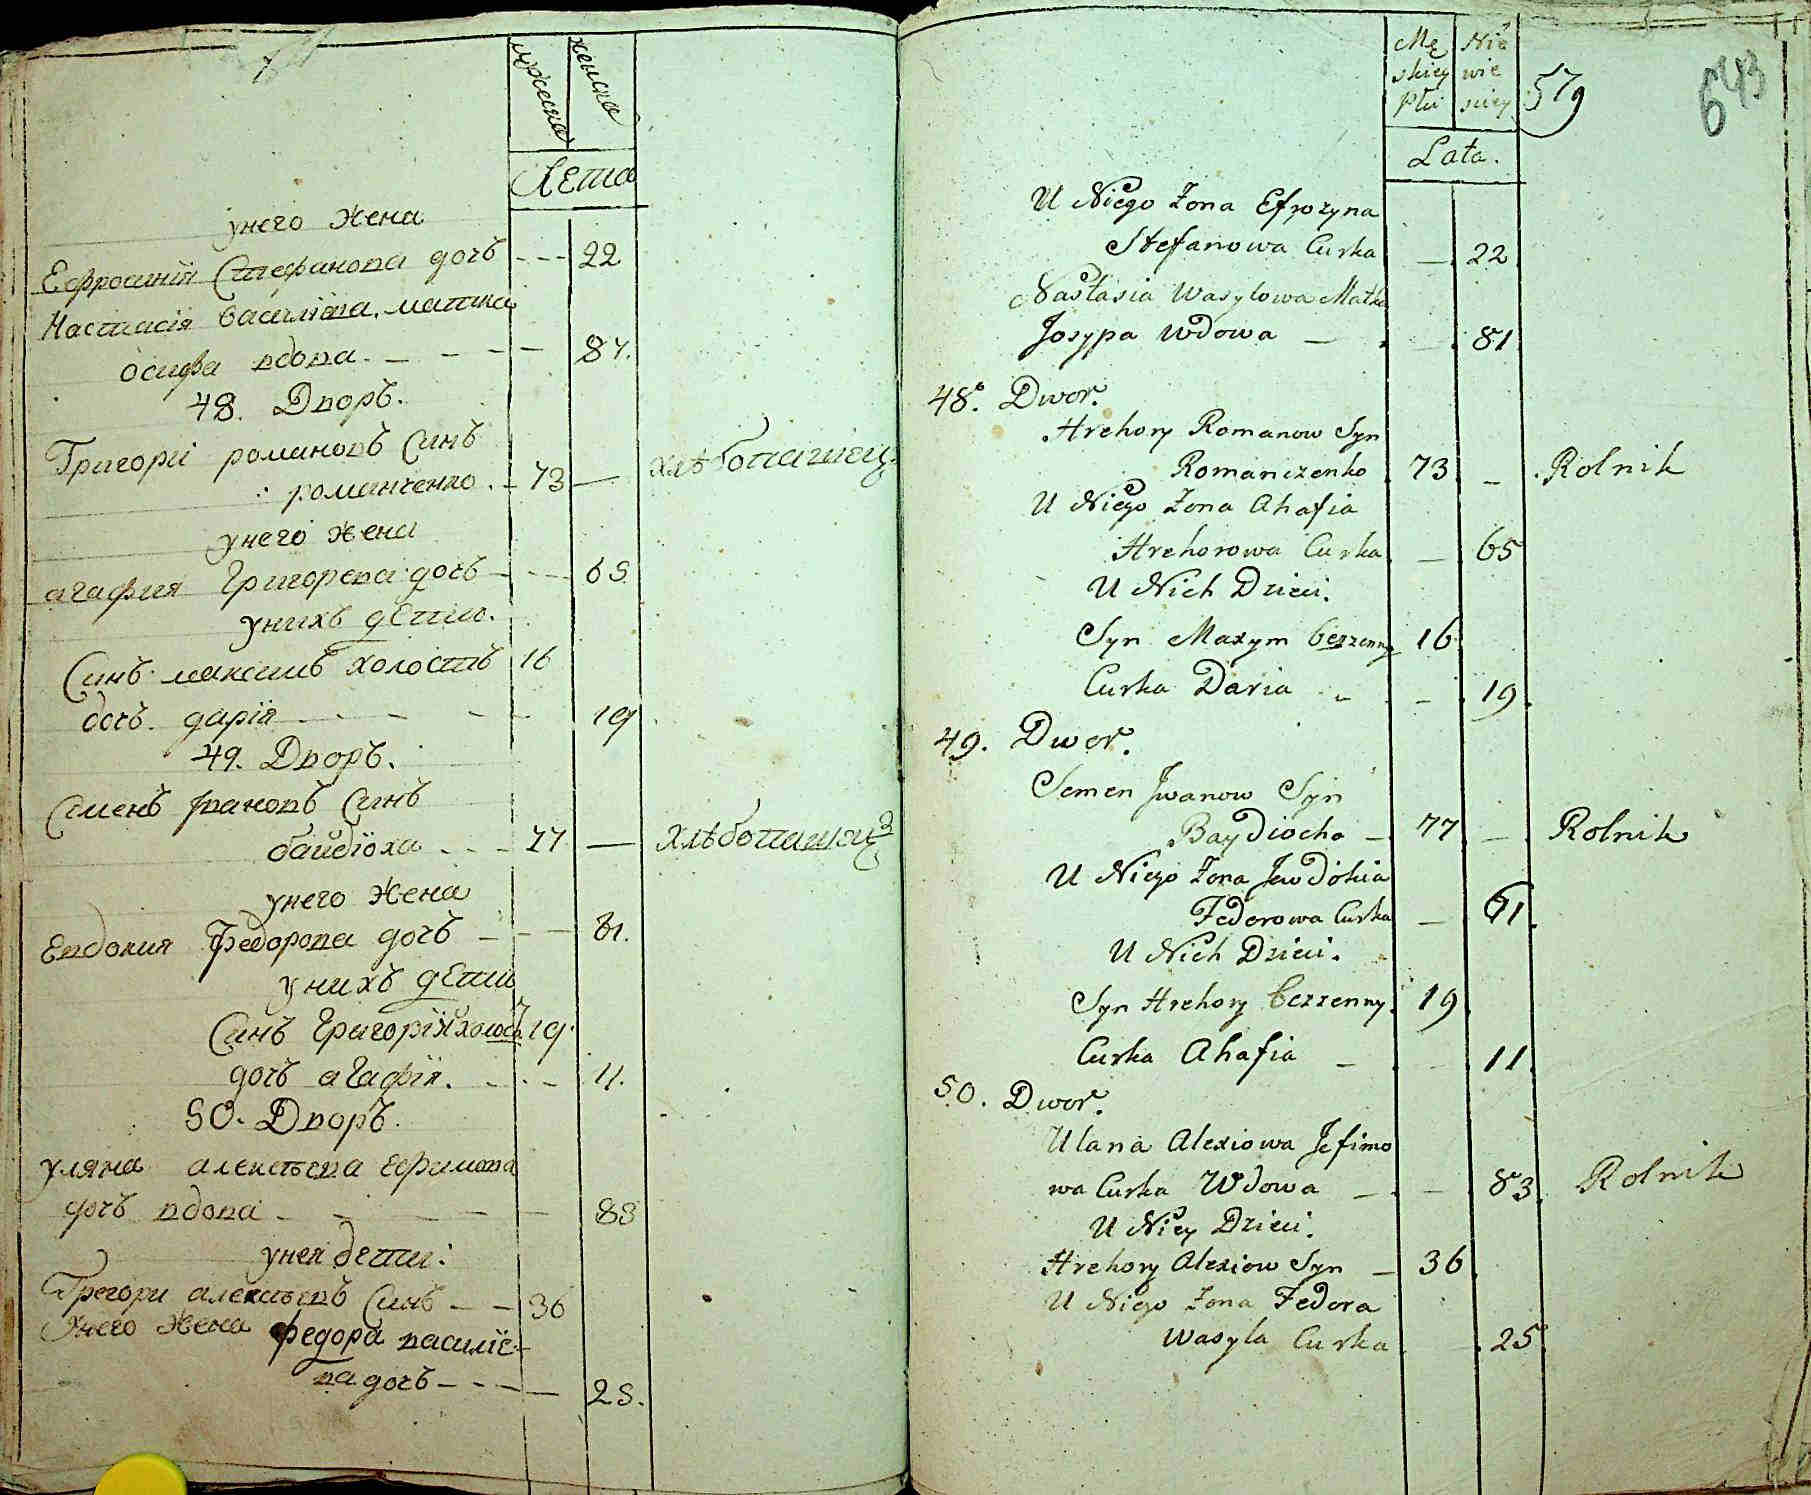 мужеска
женска
Лета
унего жена
Ефросинїя Стефанова дочъ - - - 22
Настасія василїва матка
осифа вдова. - - - - 81.
48. Дворъ.
Григори романовъ Синъ
романченко. - 73 — хлѣбопашецъ
унего жена
агафия Григорева дочъ - - - 65
унихъ дети.
Синъ максимъ холостъ 16
дочъ дарїя - - - - 19
49. Дворъ.
Сѣменъ Iвановъ Синъ
байдїоха - - - 77 — хлѣбопашецъ
унего жена
Евдокия Федорова дочъ - - - 61.
унихъ дети
Синъ Григорїй холостъ 19.
дочъ агафїя. - - - 11.
50. Дворъ.
уляна алексѣева Ефимова
дочъ вдова - - - - 83
унея дети:
Григори алексѣевъ Синъ - - 36
Унего жена федора василїе-
ва дочъ - - - - 25.
Mę Nie
skiey wie
Płci sciey
579
643
Lata.
U Niego Zona Efrozyna
Stefanowa Curka — 22
Nastasia Wasylowa Matka
Josypa Wdowa — — 81
48. Dwor.
Hrehory Romanow Syn
Romanczenko 73 — Rolnik
U Niego Zona Ahafia
Hrehorowa Curka — 65
U Nich Dzieci.
Syn Maxym bezzenny 16
Curka Daria - - 19.
49. Dwor.
Semen Jwanow Syn
Baydiocha — 77 — Rolnik
U Niego Zona Jewdokia
Federowa Curka — 61.
U Nich Dzieci.
Syn Hrehory bezzenny. 19
Curka Ahafia — - 11.
50. Dwor.
Ulana Alexiowa Jefimo
wa Curka Wdowa — — 83. Rolnik
U Niey Dzieci.
Hrehory Alexiow Syn — 36
U Niego Zona Fedora
Wasyla Curka 25